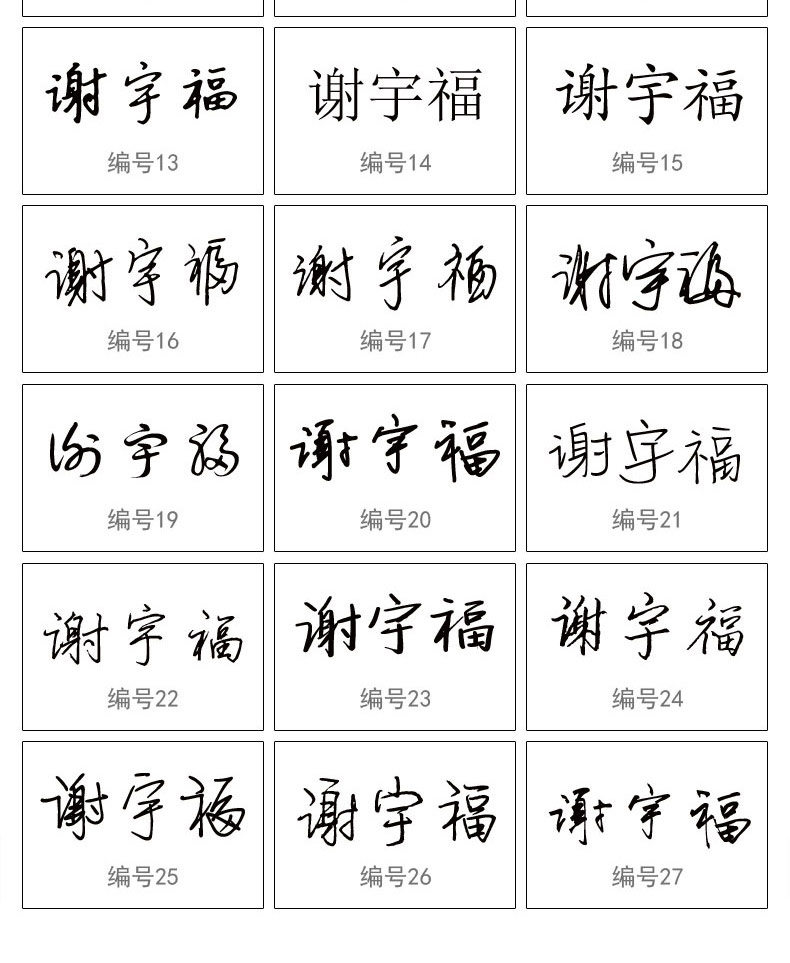 谢宇福 谢宇福 谢宇福
编号13 编号14 编号15
谢宇福 谢宇福 谢宇福
编号16 编号17 编号18
谢宇福 谢宇福 谢宇福
编号19 编号20 编号21
谢宇福 谢宇福 谢宇福
编号22 编号23 编号24
谢宇福 谢宇福 谢宇福
编号25 编号26 编号27